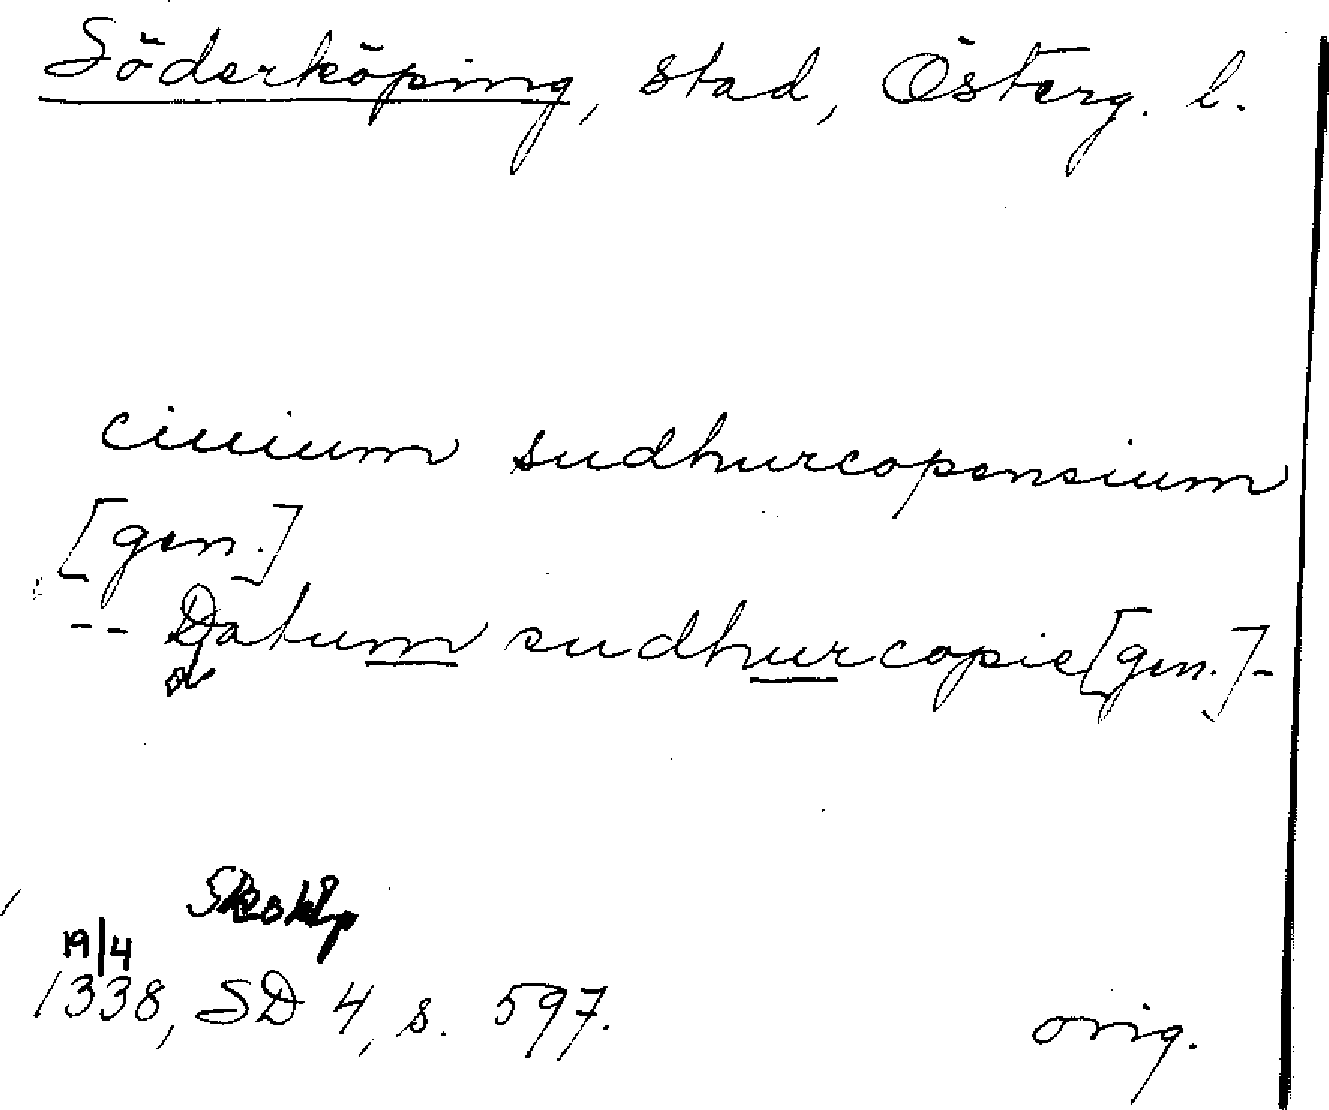 Söderköping, stad, Österg. l.
ciuium sudhurcopensium
[gen.]
-- Datum sudhurcopie [gen.] -
d
19/4
1338, SD 4, s. 597.
orig.